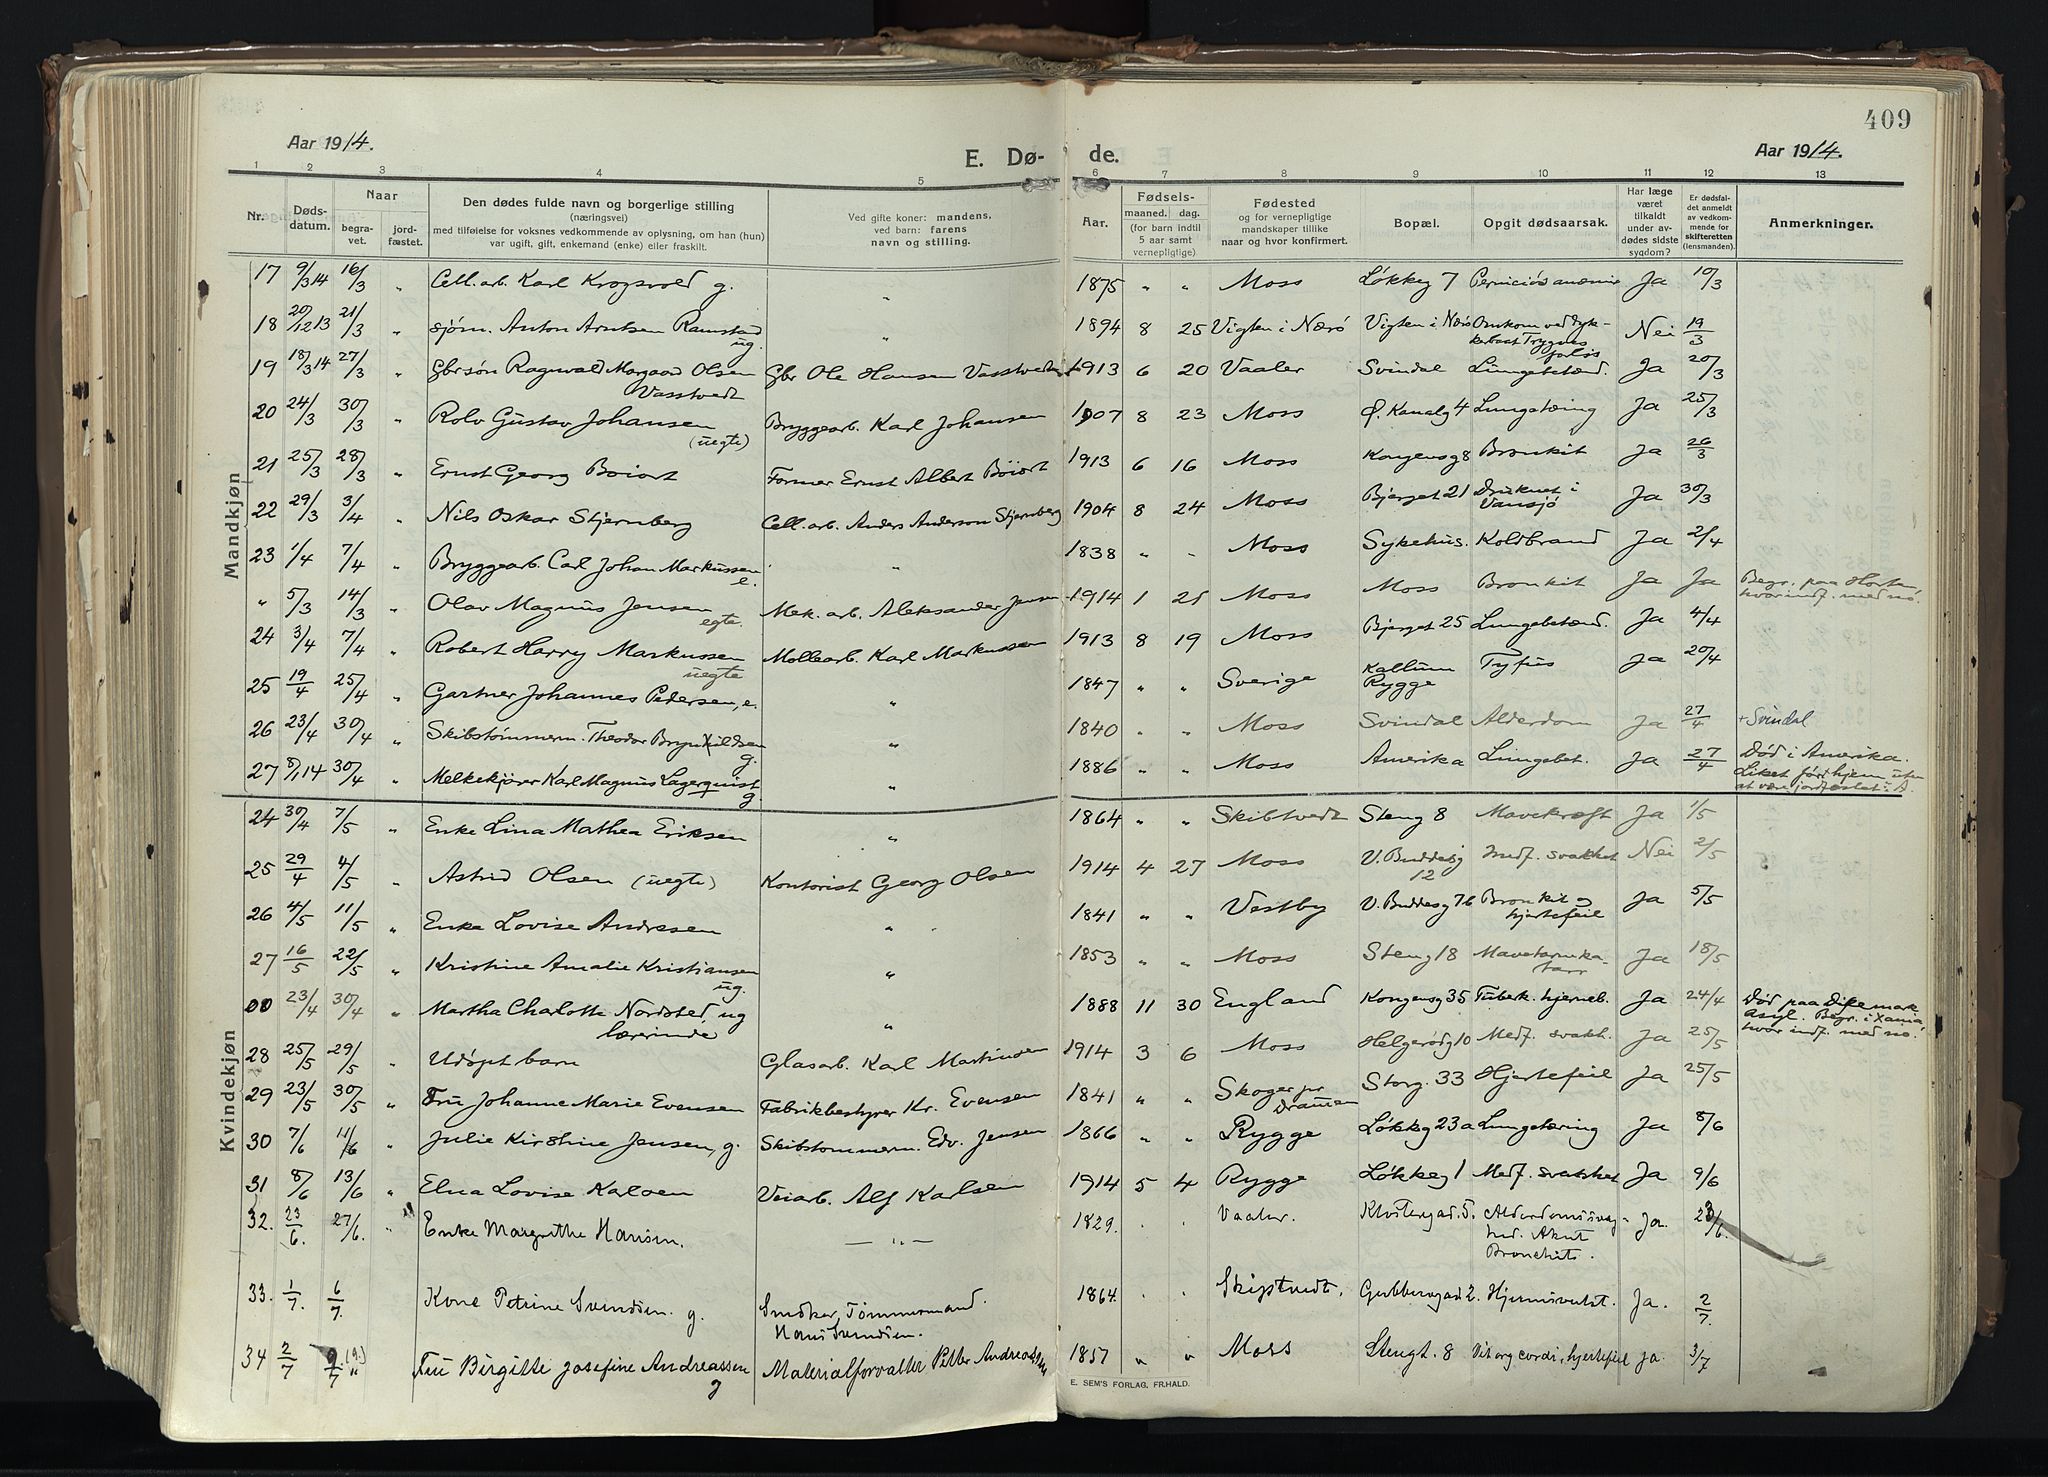 409
Aar 1914. E. Dø- de. Aar 1914.
1 2 3 4 5 6 7 8 9 10 11 12 13
Nr. Døds-datum. Naar begra-vet. jord-fæstet. Den dødes fulde navn og borgerlige stilling (næringsvei) med tilføielse for voksnes vedkommende av oplysning, om han (hun) var ugift, gift, enkemand (enke) eller fraskilt. Ved gifte koner: mandens, ved barn: farens navn og stilling. Aar. Fødsels- maaned. dag. (for barn indtil 5 aar samt vernepligtige) Fødested og for vernepligtige mandskaper tillike naar og hvor konfirmert. Bopæl. Opgit dødsaarsak. Har læge været tilkaldt under av-dødes sidste sygdom? Er dødsfal-det anmeldt av vedkom-mende for skifteretten (lensmanden). Anmerkninger.
Mandkjøn
17 9/3 14 16/3 " Cell.arb. Karl Krogsvold g. " 1875 " " Moss Løkkeg 7 Perniciøs anæmi Ja 10/3
18 20/12 13 21/3 " sjøm. Anton Arntsen Ramstad ug. " 1894 8 25 Vigten i Nærø Vigten i Nærø Omkom ved dyk-kerbaat Trygves forlis Nei 19/3
19 18/3 14 27/3 " Gbr søn Ragnvald Margaad Olsen Vasstvedt Gbr Ole Hansen Vasstvedt 1913 6 20 Vaaler Svindal Lungebetænd. Ja 20/3
20 24/3 30/3 " Rolv Gustav Johansen (uegte) Bryggearb. Karl Johansen 1907 8 23 Moss Ø. Kanalg 4 Lungetæring Ja 25/3
21 25/3 28/3 " Ernst Georg Boiort Former Ernst Albert Böiort 1913 6 16 Moss Kongensg 8 Bronkit Ja 26/3
22 29/3 3/4 " Nils Oskar Stjernberg Cell.arb. Anders Anderson Stjernberg 1904 8 24 Moss Bjerget 21 Druknet i Vansjø Ja 30/3
23 1/4 7/4 " Bryggearb. Carl Johan Markussen e. " 1838 " " Moss Sykehus. Koldbrand Ja 2/4
" 5/3 14/3 " Olav Magnus Jensen egte. Mek. arb. Aleksander Jensen 1914 1 25 Moss Moss Bronkit Ja Ja Begr. paa Horten hvor indf. med no.
24 3/4 7/4 " Robert Harry Markussen uegte Møllearb. Karl Markussen 1913 8 19 Moss Bjerget 25 Lungebetænd. Ja 4/4
25 19/4 25/4 " Gartner Johannes Pedersen, e. " 1847 " " Sverige Kallum Rygge Tyfus Ja 20/4
26 23/4 30/4 " Skibstømmerm. Theodor Brynildsen g. " 1840 " " Moss Svindal Alderdom Ja 27/4 + Svindal
27 8/1 14 30/4 " Melkekjører Karl Magnus Lagerquist g. " 1886 " " Moss Amerika Lungebet. Ja 27/4 Død i Amerika. Liket ført hjem uten at være jordfæstet i A.
Kvindekjøn
24 30/4 7/5 " Enke Lina Mathea Eriksen " 1864 " " Skibtvedt Steng 8 Mavekræft Ja 1/5
25 29/4 4/5 " Astrid Olsen (uegte) Kontorist Georg Olsen 1914 4 27 Moss V. Buddesg 12 Medf. svakhet Nei 2/5
26 4/5 11/5 " Enke Lovise Andresen " 1841 " " Vestby V. Buddesg 7b Bronkit og hjertefeil Ja 5/5
27 16/5 22/5 " Kristine Amalie Kristiansen ug. " 1853 " " Moss Steng 18 Mavetarmka-tarr Ja 18/5
00 23/4 30/4 " Martha Charlotte Nordsted, ug lærerinde " 1888 11 30 England Kongensg 35 Tuberk. hjerneb. Ja 24/4 Død paa Dikemark Asyl. Begr. i Xania, hvor indf. med no.
28 25/5 29/5 " Udøpt barn Glasarb. Karl Martinsen 1914 3 6 Moss Helgerødg 10 Medf. svakh. Ja 25/5
29 23/5 30/5 " Fru Johanne Marie Evensen Fabrikbestyrer Kr. Evensen 1841 " " Skoger pr Dramen Storg. 33 Hjertefeil Ja 25/5
30 7/6 11/6 " Julie Kirstine Jensen, g. Skibstømmerm. Edv. Jensen 1866 " " Rygge Løkkeg 23a Lungetæring Ja 8/6
31 8/6 13/6 " Elna Lovise Kaloen Veiarb. Alf Karlsen 1914 5 4 Rygge Løkkeg 1 Medf. svakhet Ja 9/6
32. 23/6. 27/6. " Enke Margrethe Hansen. — " — 1829. " " Vaaler. Klostergad. 5. Alderdomssvag-hed. Akut Bronchit. Ja. 23/6.
33. 1/7. 6/7. Kone Petrine Svendsen. g. Snedker, Tømmermand. Hans Svendsen. 1864. " " Skiptvedt. Gubbergad 2. Hjernsvulst. Ja. 2/7.
34 2/7 9/7 (9.) " Fru Birgitte Josefine Andreassen g Materialforvalter Petter Andreassen 1857 " " Moss Stengt. 8 Vit. org cordi, hjertefeil Ja. 3/7
E. SEM'S FORLAG, FR.HALD.